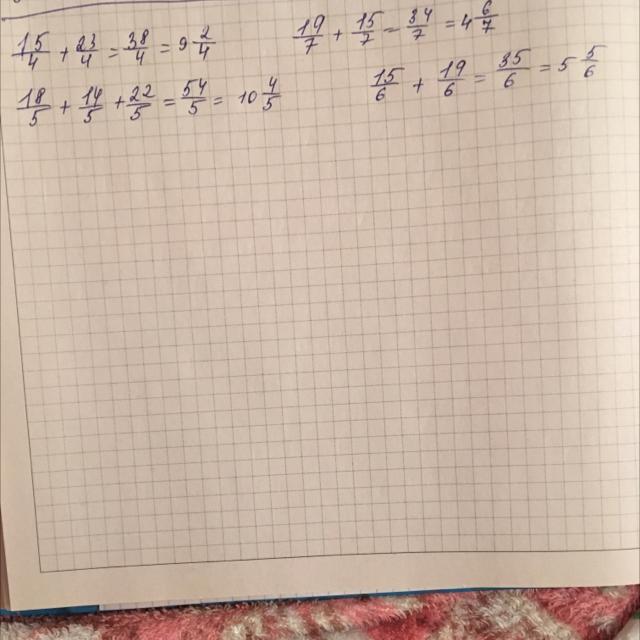 15/4 + 23/4 = 38/4 = 9 2/4
19/7 + 15/7 = 34/7 = 4 6/7
18/5 + 14/5 + 22/5 = 54/5 = 10 4/5
15/6 + 19/6 = 35/6 = 5 5/6